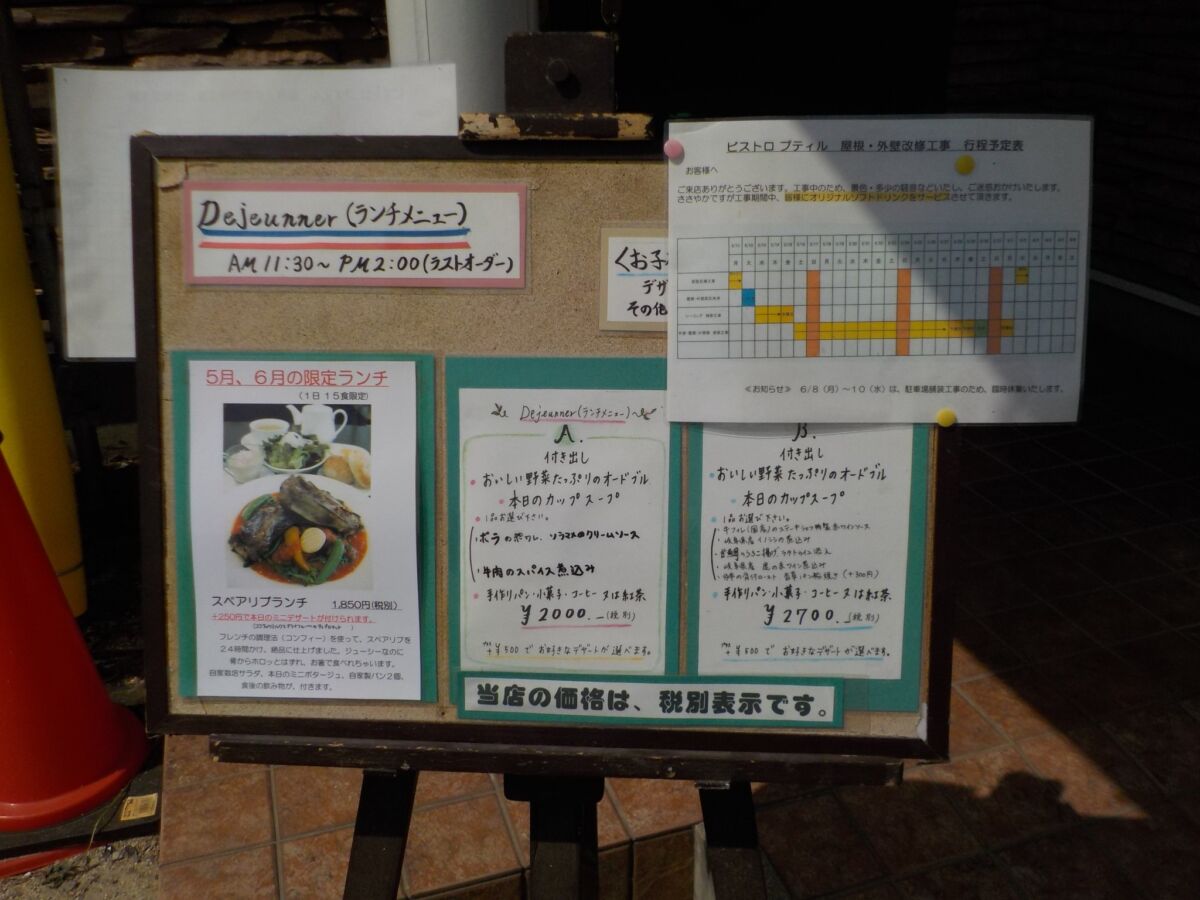 Dejeunner (ランチメニュー)
AM 11:30～ PM 2:00 (ラストオーダー)
ビストロ プティル 屋根・外壁改修工事 行程予定表
お客様へ
ご来店ありがとうございます。工事中のため、景色・多少の騒音などいたし、ご迷惑おかけいたします。
ささやかですが工事期間中、皆様にオリジナルソフトドリンクをサービスさせて頂きます。
≪お知らせ≫ 6/8（月）～10（水）は、駐車場舗装工事のため、臨時休業いたします。
くお子
デザ
その他
5月、6月の限定ランチ
（1日 15食限定）
スペアリブランチ 1,850円(税別)
+250円で本日のミニデザートが付けられます。
フレンチの調理法（コンフィー）を使って、スペアリブを
24時間かけ、絶品に仕上げました。ジューシーなのに
骨からホロッとはずれ、お箸で食べれちゃいます。
自家栽培サラダ、本日のミニポタージュ、自家製パン2個、
食後の飲み物が、付きます。
Dejeunner (ランチメニュー)
A.
付き出し
おいしい野菜たっぷりのオードブル
本日のカップスープ
1品お選び下さい。
ボラの ソラマメのクリームソース
牛肉のスパイス煮込み
手作りパン・小菓子・コーヒー又は紅茶
¥2000.-(税別)
+¥500でお好きなデザートが選べます。
B.
付き出し
おいしい野菜たっぷりのオードブル
本日のカップスープ
1品お選び下さい。
(+300円)
手作りパン・小菓子・コーヒー又は紅茶
¥2700.-(税別)
+¥500でお好きなデザートが選べます。
当店の価格は、税別表示です。